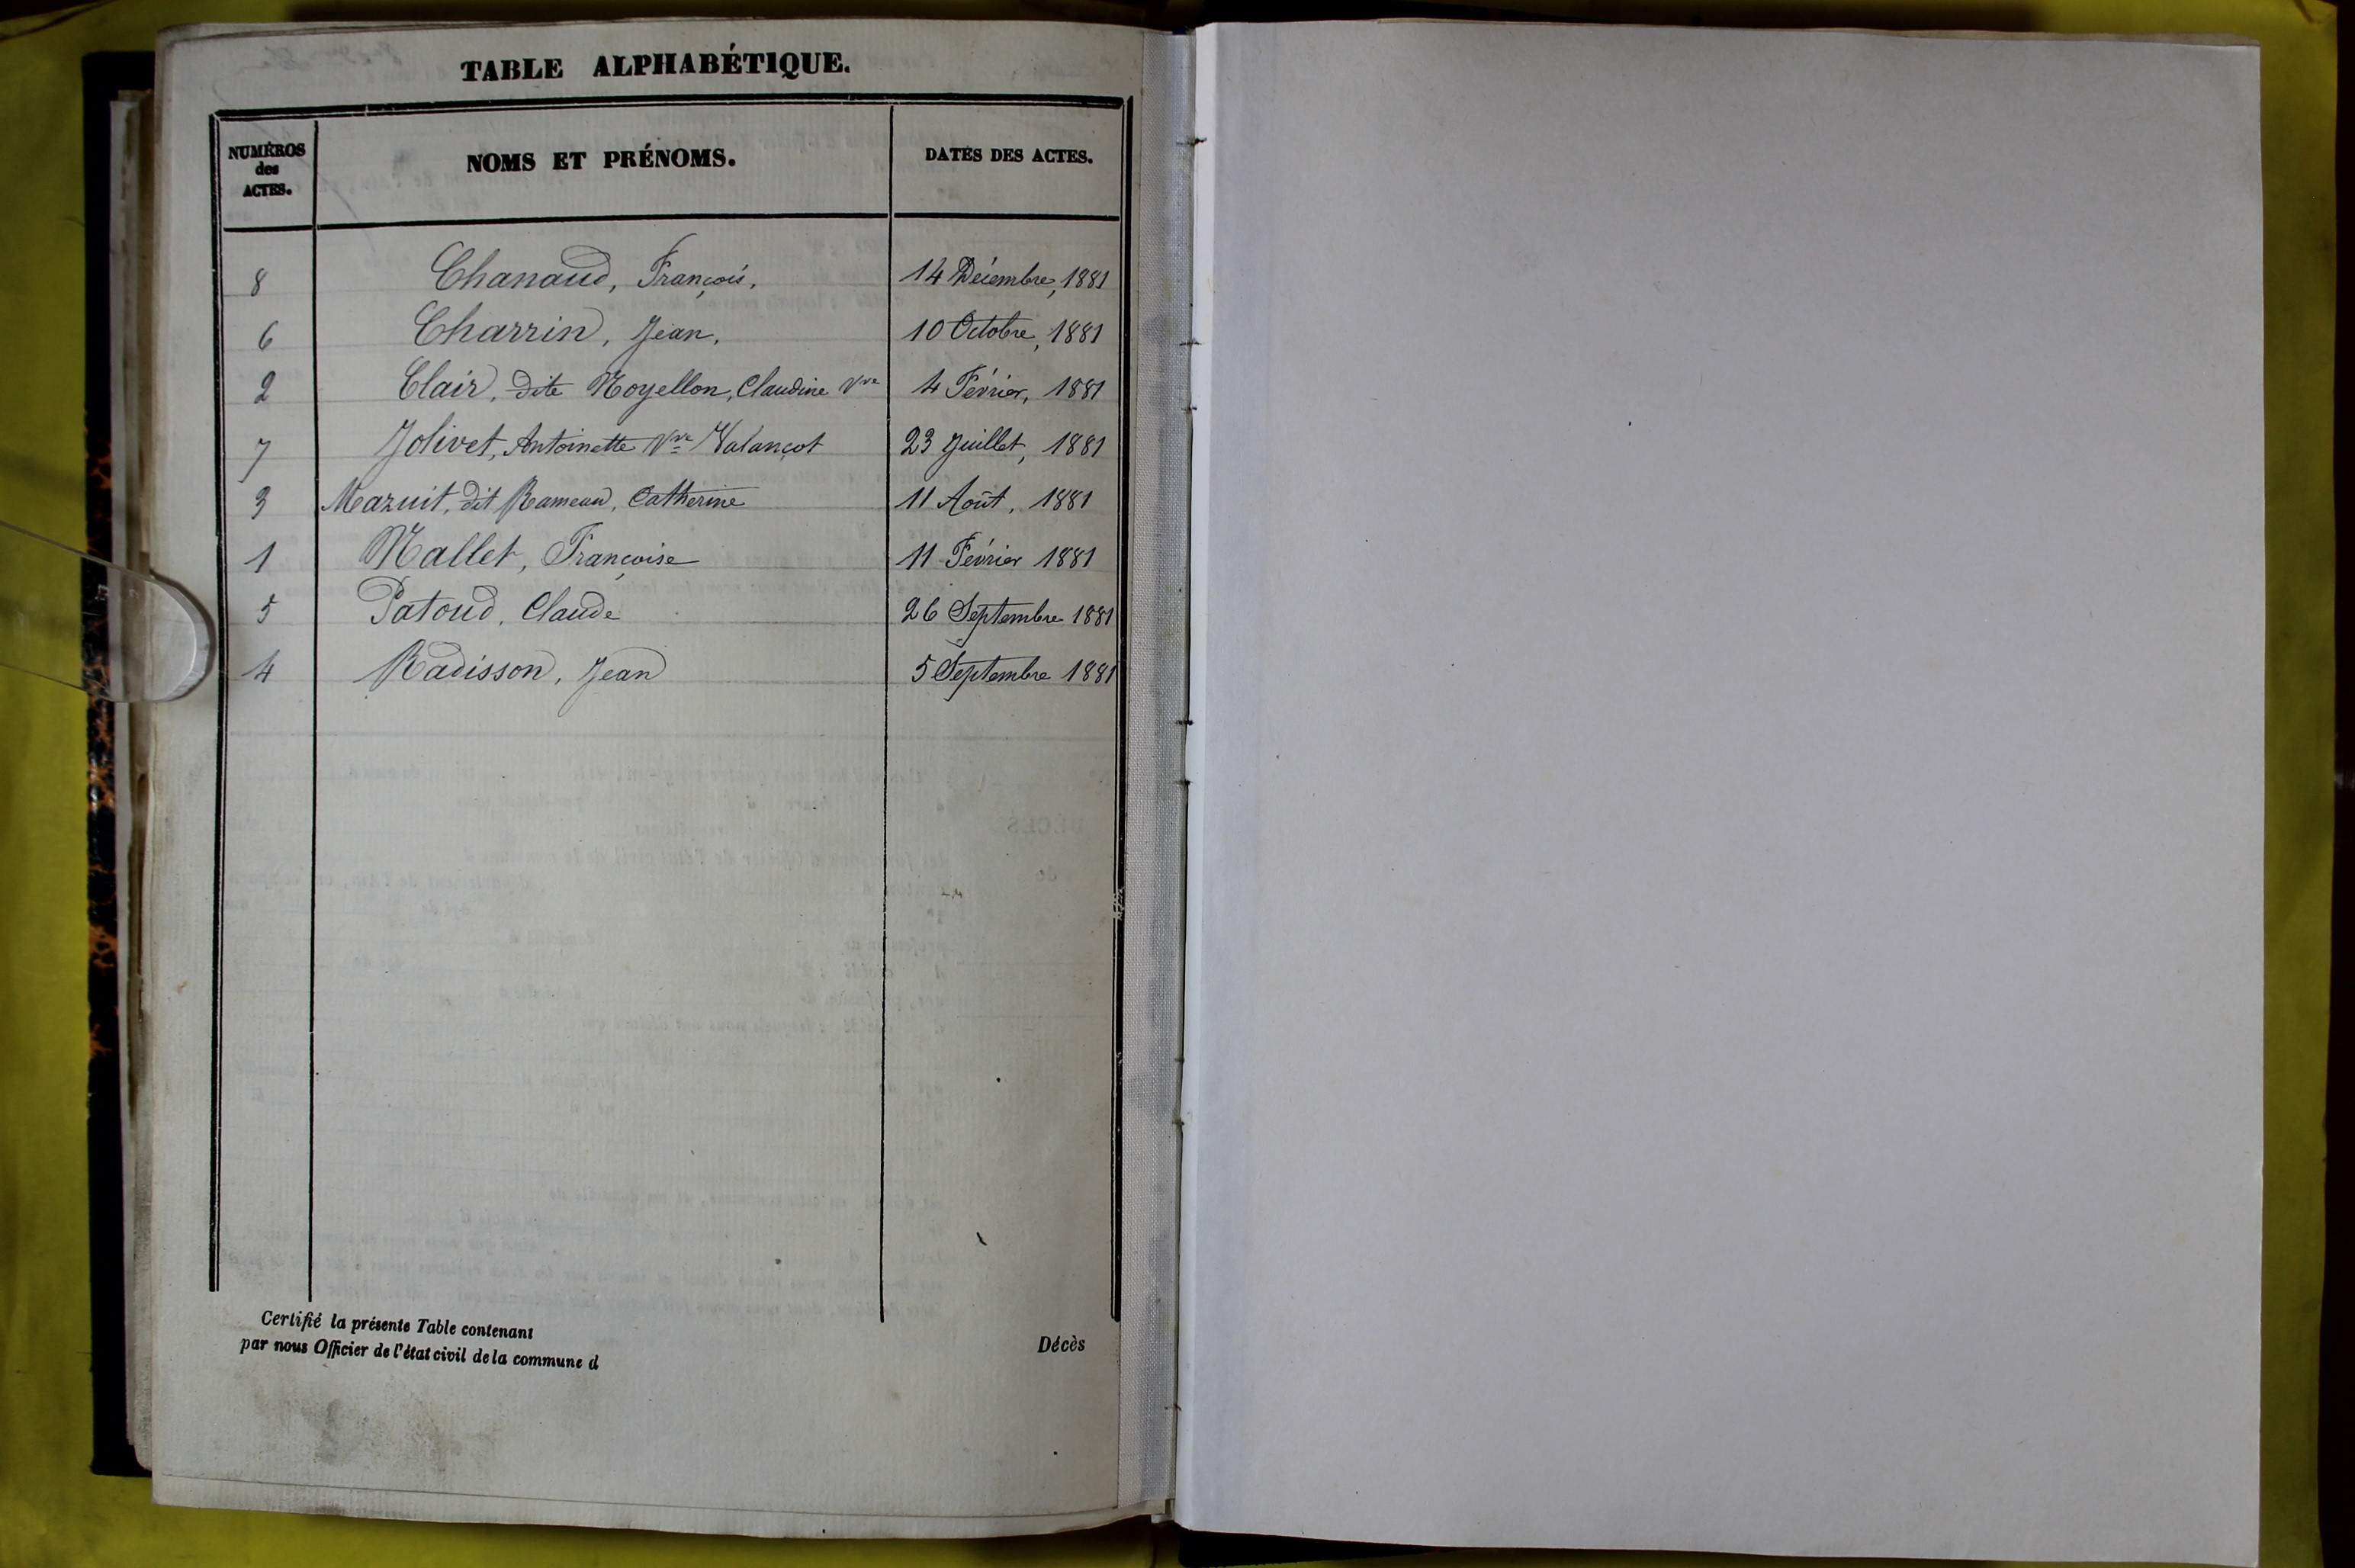 TABLE ALPHABÉTIQUE.
NUMÉROS des ACTES. NOMS ET PRÉNOMS. DATES DES ACTES.
8 Chanaud, François, 14 Décembre, 1881
6 Charrin, Jean, 10 Octobre, 1881
2 Clair, dite Noyellon, Claudine Vve 4 Février, 1881
7 Jolivet, Antoinette Vve Valançot 23 Juillet, 1881
3 Mazuit, dit Rameau, Catherine 11 Août, 1881
1 Mallet, Françoise 11 Février 1881
5 Patoud, Claude 26 Septembre 1881
4 Radisson, Jean 5 Septembre 1881
Certifié la présente Table contenant Décès
par nous Officier de l'état civil de la commune d